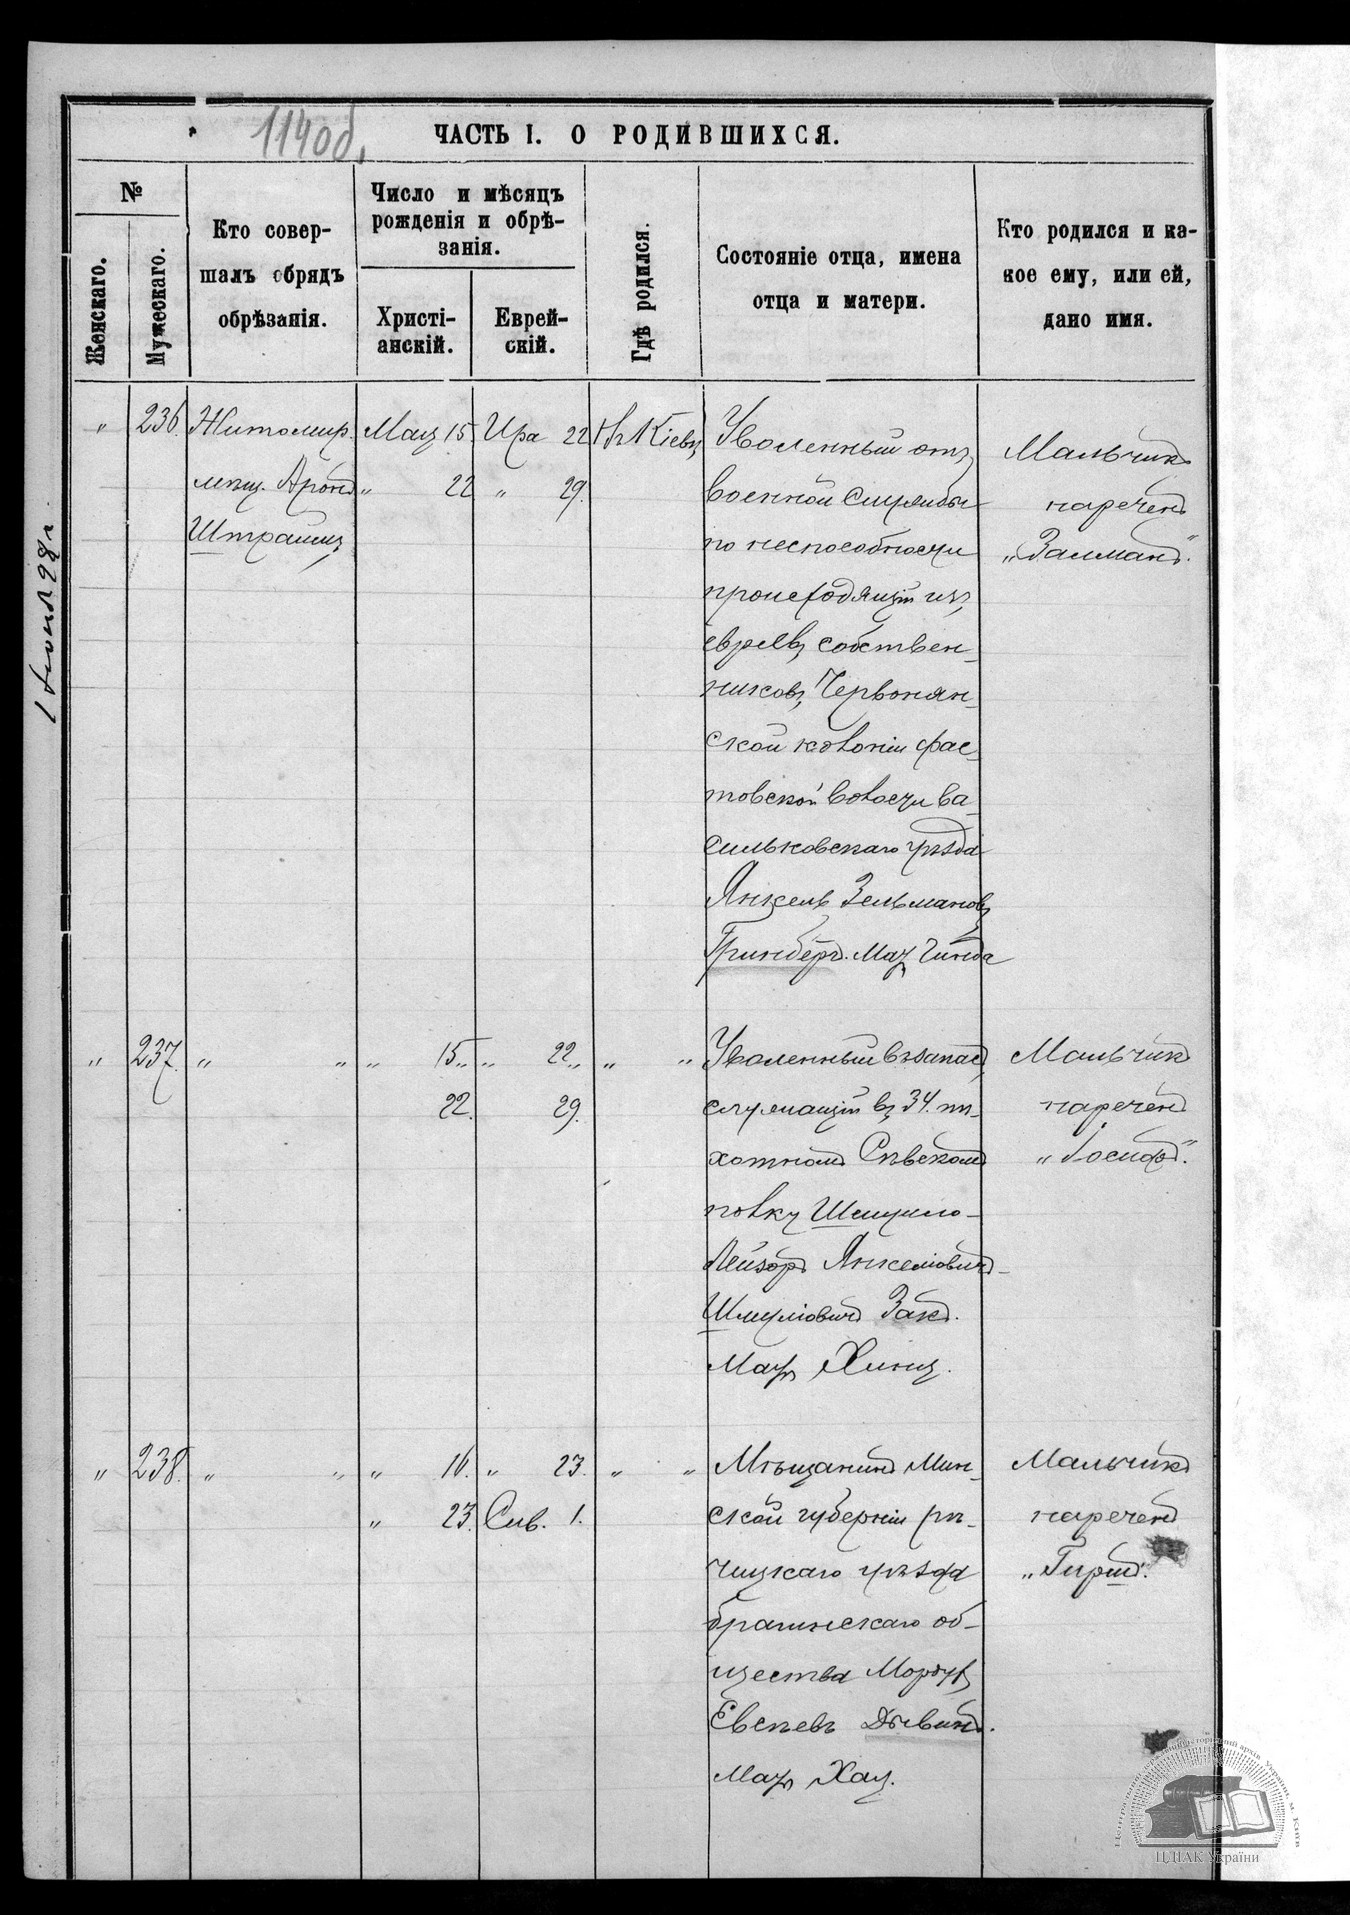 114об.
ЧАСТЬ I. О РОДИВШИХСЯ.
№
Женскаго.
Мужескаго.
Кто совер-
шалъ обрядъ
обрѣзанія.
Число и мѣсяцъ
рожденія и обрѣ-
занія.
Христі-
анскій.
Еврей-
скій.
Гдѣ родился.
Состояніе отца, имена
отца и матери.
Кто родился и ка-
кое ему, или ей,
дано имя.
" 236. Житомир. Мая 15 Ира 22 Въ Кіевѣ
мѣщ. Аронъ " 22 " 29.
Штраймъ
Уволенный отъ
военной службы
по неспособности
происходящій изъ
евреевъ собствен-
никовъ Червонян-
ской колоніи Фас-
товской волости Ва-
сильковскаго уѣзда
Янкель Зельмановъ
Гринбергъ. Мать Гинда
Мальчикъ
нареченъ
"Залманъ".
" 237. " " " 15 " " 22 " " "
22. 29.
Уволенный въ запасъ
служащій въ 34. пѣ-
хотномъ Сѣвскомъ
полку Шмуило-
Лейзоръ Янкеліовичъ-
Шмуліовичъ Закъ.
Мать Хинц.
Мальчикъ
нареченъ
"Іосифъ".
" 238. " " " 16. " 23. " "
" 23. Сив. 1.
Мѣщанинъ Мин-
ской губерніи рѣ-
чицкаго уѣзда
брагинскаго об-
щества Мордух
Евсѣевъ Дывинъ.
Мать Хая.
Мальчикъ
нареченъ
"Гиршъ".
ЦДІАК України